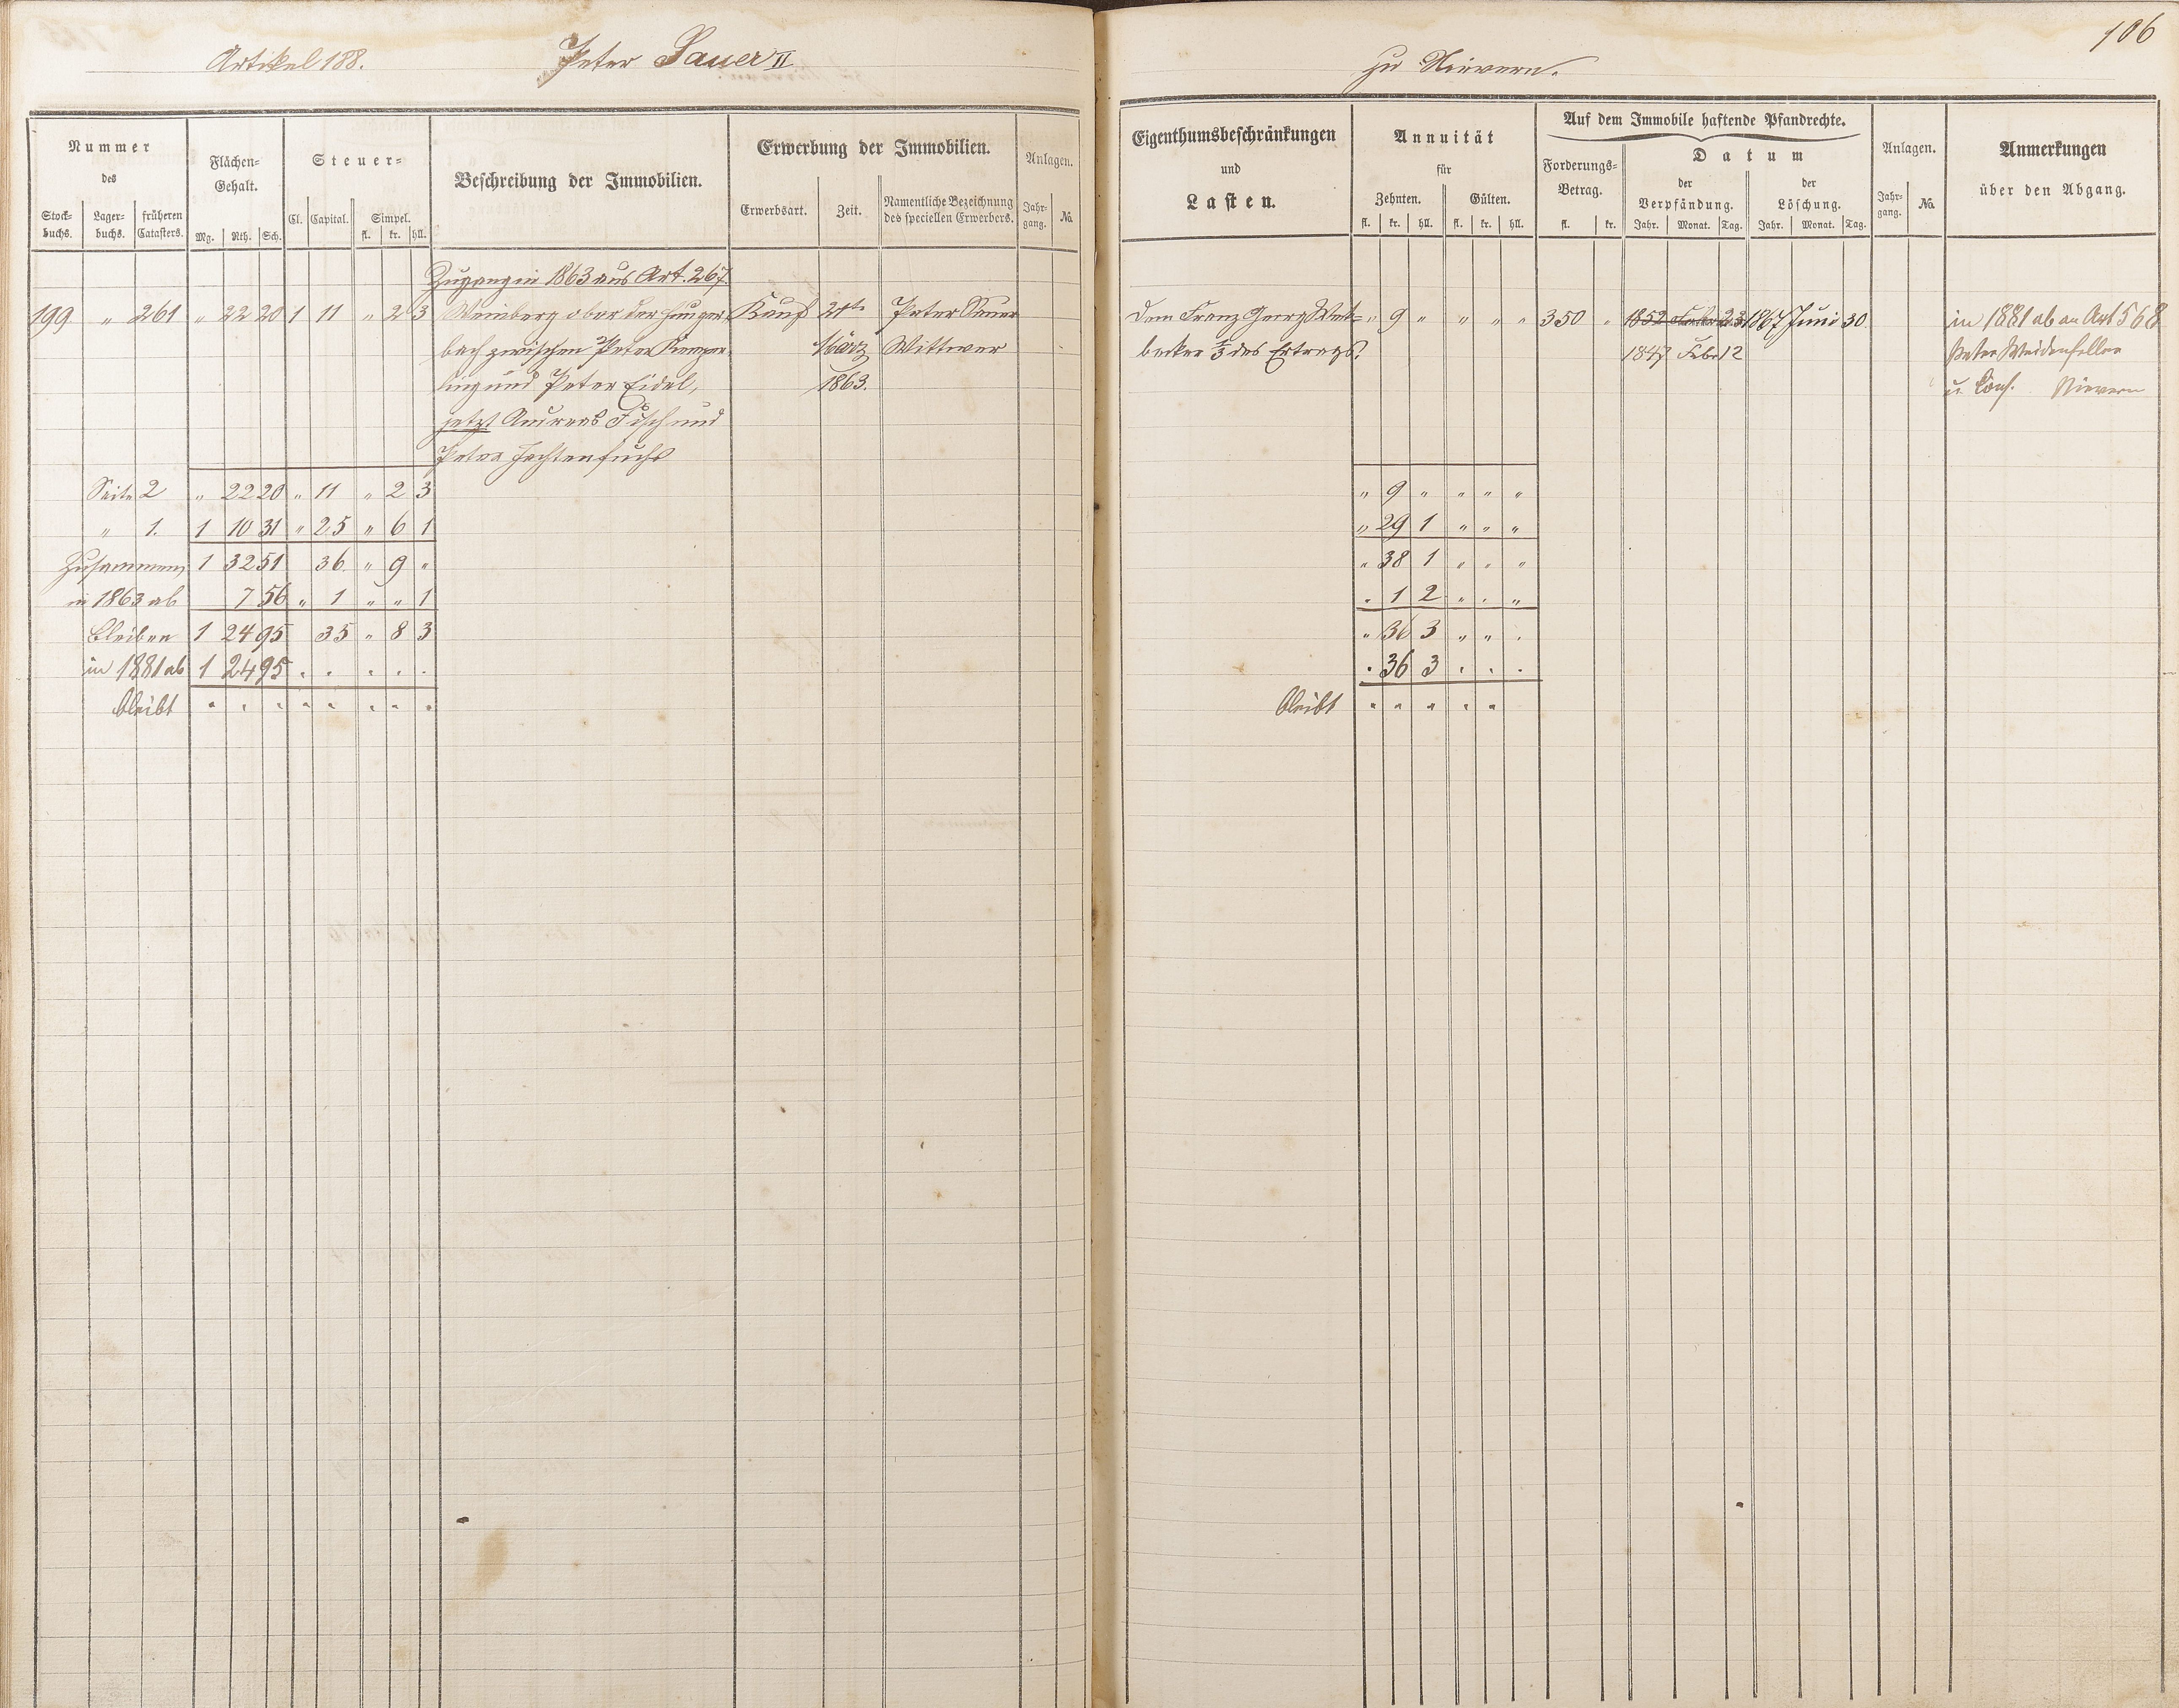 Artikel 188. Peter Sauer II
zu Nievern. 106
Nummer
des
Stock-
buchs.
Lager-
buchs.
früheren
Catasters.
Flächen-
Gehalt.
Mg. Rth. Sch.
Steuer-
Cl. Capital. Simpel.
fl. kr. hll.
Beschreibung der Immobilien.
Erwerbung der Immobilien.
Erwerbsart. Zeit.
Namentliche Bezeichnung
des speciellen Erwerbers.
Anlagen.
Jahr-
gang.
No.
Zugang in 1863 aus Art. 267.
199 " 261 " 22 20 1 11 " 2 3 Weinberg ober der Hunger- Kauf 21te Peter Sauer
bach zwischen Peter März Wittwer
ling und Peter Eidel, 1863.
jetzt Andreas Fisch und
Peter
Seite 2 " 22 20 " 11 " 2 3
" 1. 1 10 31 " 25 " 6 1
Zusammen 1 32 51 36 " 9 "
in 1863 ab 7 56 " 1 " " 1
Bleiben 1 24 95 35 " 8 3
in 1881 ab 1 24 95 . . . . .
bleibt " " " " " " " "
Eigenthumsbeschränkungen
und
Lasten.
Annuität
für
Zehnten. Gülten.
fl. kr. hll. fl. kr. hll.
Auf dem Immobile haftende Pfandrechte.
Forderungs-
Betrag.
fl. kr.
Datum
der
Verpfändung.
Jahr. Monat. Tag.
der
Löschung.
Jahr. Monat. Tag.
Anlagen.
Jahr-
gang.
No.
Anmerkungen
über den Abgang.
Dem Franz Georg " 9 " " " " 350 " 1852 23 1867 Juni 30 in 1881 ab an Art 568
becker 1/3 des Ertrags. 1847 Febr 12 Peter Weidenfeller
u. Cons. Nievern
" 9 " " " "
" 29 1 " " "
" 38 1 " " "
" 1 2 " " "
" 36 3 " " "
. 36 3 . . .
bleibt " " " " "